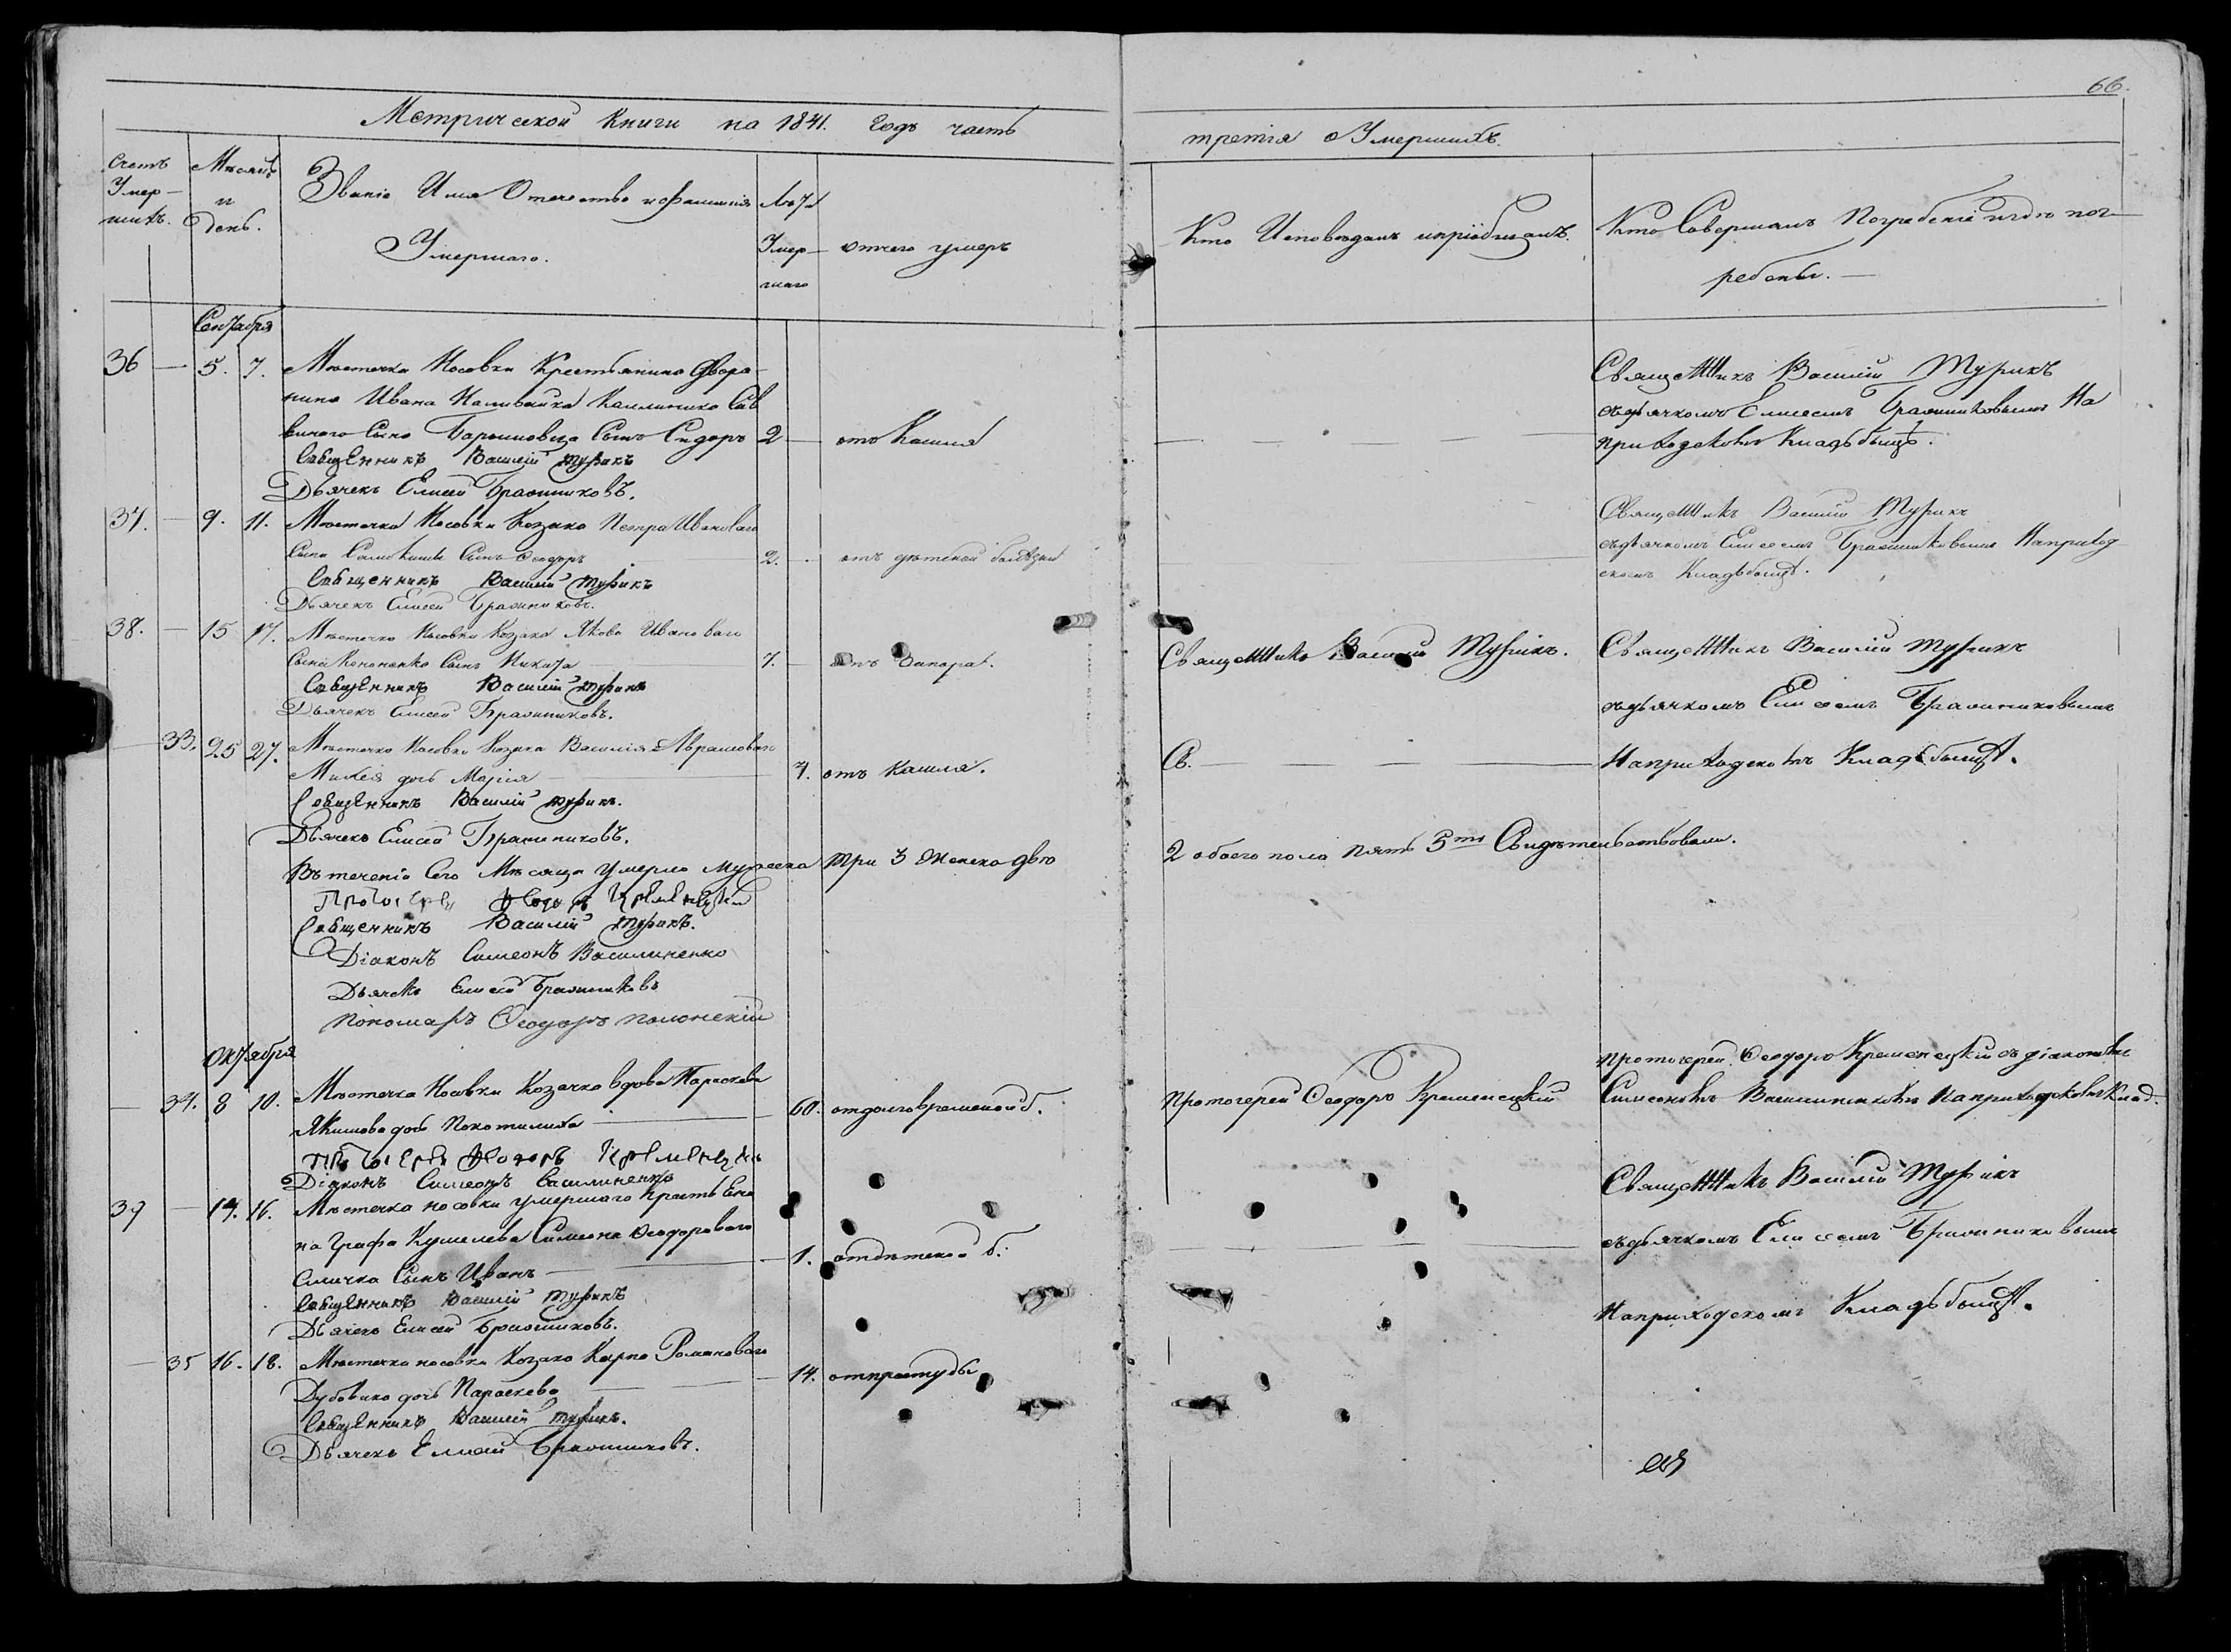 66.
Метрической книги на 1841. Годъ часть
третія о Умершихъ.
Счетъ Умер-шихъ.
Мѣсяцъ и день.
Званіе Имя Отечество и Фамилія
Умершаго.
Лѣта Умер-шаго
отчего умеръ
Кто Исповѣдалъ и пріобщалъ.
Кто Совершалъ Погребеніе и гдѣ пог-
ребены.
Сентября
36 — 5. 7. Мѣстечка Носовки Крестьянина Дворя-
нина Ивана Каллиника Сав
вичого Сына Сынъ Сидоръ 2 — отъ Кашля
Священникъ Василій Турикъ
Дьячекъ Елисей Бражниковъ.
Священникъ Василій Турикъ
съ дьячкомъ Елисеемъ Бражниковымъ На
приходскомъ Кладбищѣ.
37. — 9. 11. Мѣстечка Носовки Козака Петра Иванового
Сына Сынъ Ѳеодоръ 2. — отъ дѣтской болѣзни
Священникъ Василій Турикъ
Дьячекъ Елисей Бражниковъ.
Священникъ Василій Турикъ
съ дьячкомъ Елисеемъ Бражниковымъ На приход
скомъ Кладбищѣ.
38. — 15 17. Мѣстечка Носовки Козака Якова Иванового
Сына Кононенка Сынъ Никита 7. — отъ запора.
Священникъ Василій Турикъ
Дьячекъ Елисей Бражниковъ.
Священникъ Василій Турикъ.
Священникъ Василій Турикъ
съ дьячкомъ Елисеемъ Бражниковымъ
— 33. 25 27. Мѣстечка Носовки Козака Василія Абрамового
Михея дочь Марія — 7. отъ кашля.
Священникъ Василій Турикъ.
Дьячекъ Елисей Бражниковъ.
Св.
На приходскомъ Кладбищѣ.
Въ теченіе Сего Мѣсяца умерло мужеска три 3 женска двѣ
2 обоего пола пять 5ть Свидѣтельствовали.
Протоіерей Ѳеодоръ Кременецкій
Священникъ Василій Турикъ.
Діаконъ Симеонъ Василиненко
Дьячекъ Елисей Бражниковъ
Пономаръ Ѳеодоръ Полонскій
Октября
— 34. 8 10. Мѣстечка Носовки Козачка вдова Параскева
Якимова дочь Покотилиха — 60. от долговременной б.
Протоіерей Ѳеодоръ Кременецкій
Діаконъ Симеонъ Василиненко
Протоіерей Ѳеодоръ Кременецкій
Протоіерей Ѳеодоръ Кременецкій съ діакономъ
Симеономъ Василиненкомъ На приходскомъ Клад.
39 — 14. 16. Мѣстечка носовки умершаго Крестьяни
на Графа Кушелева Симеона Ѳеодорового
Сличка Сынъ Иванъ — 1. от дѣтской б.
Священникъ Василій Турикъ
Дьячекъ Елисей Бражниковъ.
Священникъ Василій Турикъ
съ дьячкомъ Елисеемъ Бражниковымъ
На приходскомъ Кладбищѣ.
— 35 16. 18. Мѣстечка носовки Козака Карпа Романового
Дубовика дочь Параскева — 14. от простуды
Священникъ Василій Турикъ.
Дьячекъ Елисей Бражниковъ.